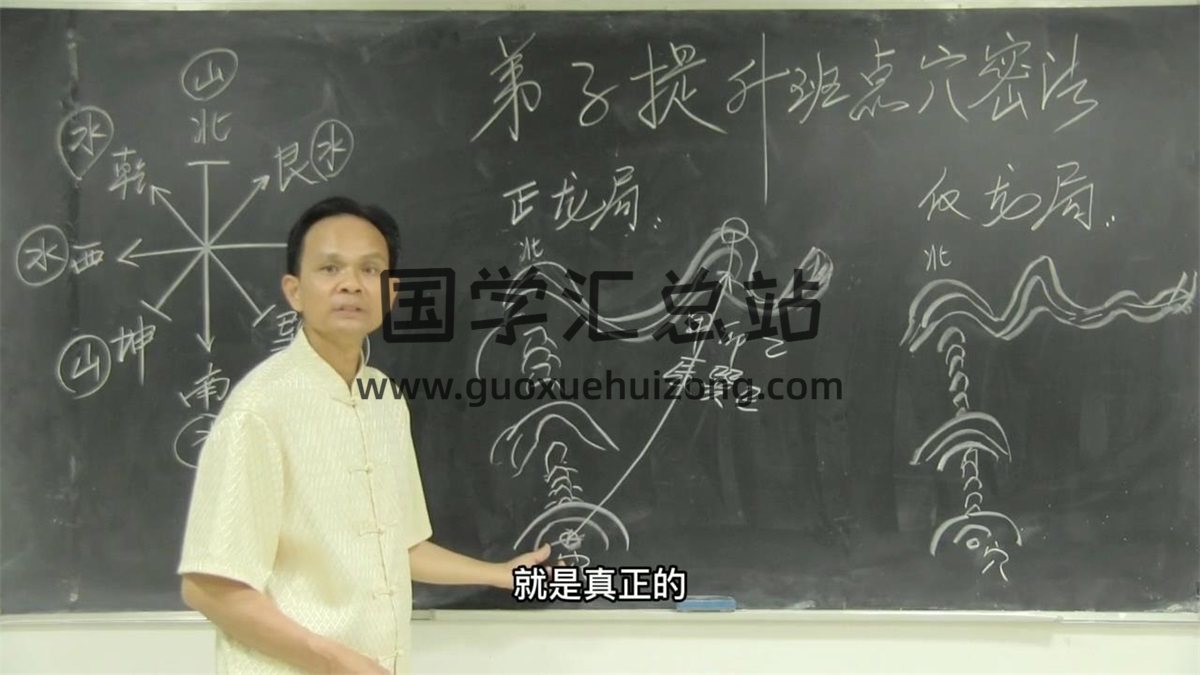 弟子提升班点穴密法
山
北
水
乾
艮
水
水
西
山
坤
南
正龙局.
北
仅龙局.
北
穴
国学汇总站
www.guoxuehuizong.com
就是真正的